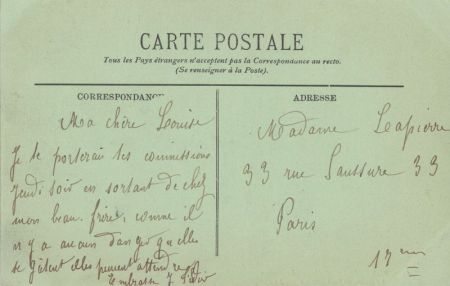 CARTE POSTALE
Tous les Pays étrangers n'acceptent pas la Correspondance au recto.
(Se renseigner à la Poste).
CORRESPONDANCE
Ma chère Louise
Je te porterai tes commissions
jeudi soir en sortant de chez
mon beau-frère, comme il
n'y a aucun danger qu'elles
se gâtent elles peuvent attendre
Embrasse
ADRESSE
Madame Lapierre
33 rue Saussure 33
Paris
17 eme